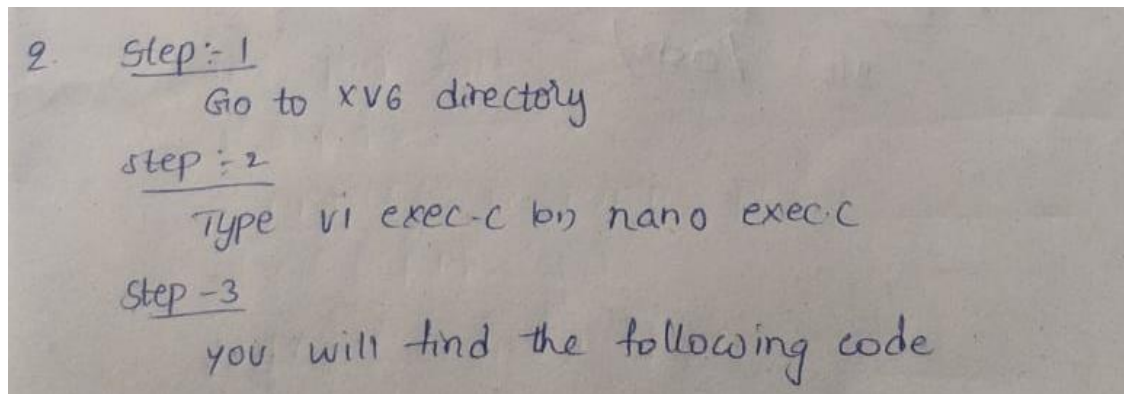 2. Step:- 1
Go to XV6 directory
step :- 2
Type vi exec.c (or) nano exec.c
Step -3
you will find the following code